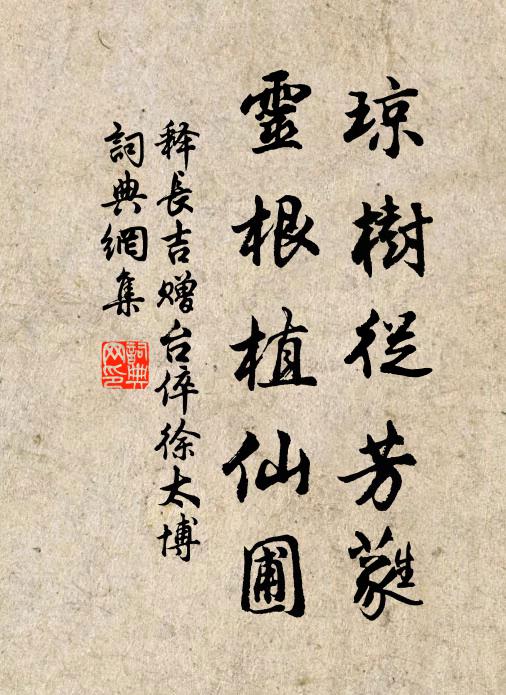 琼樹從芳蕤
靈根植仙圃
释長吉赠台倅徐太博
詞典網集
詞典网印